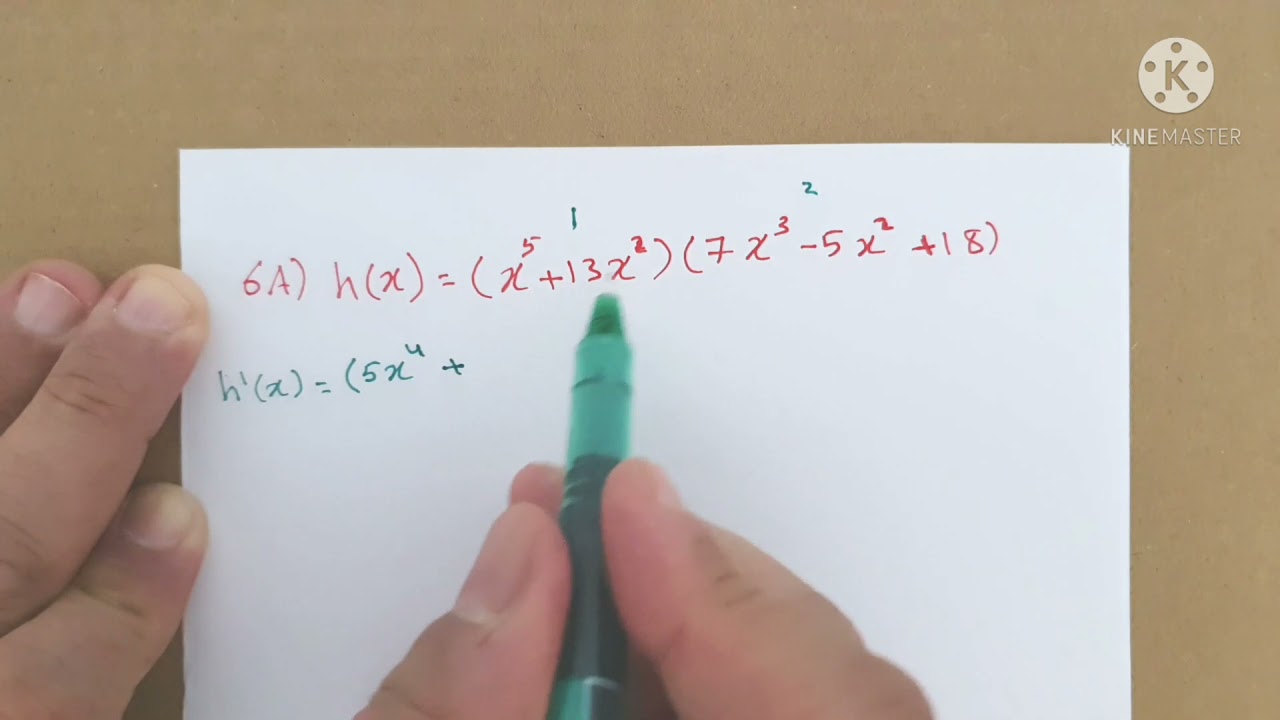 K
KINEMASTER
1 2
6A) h(x) = (x⁵ +13x²)(7x³ -5x² +18)
h'(x) = (5x⁴ +